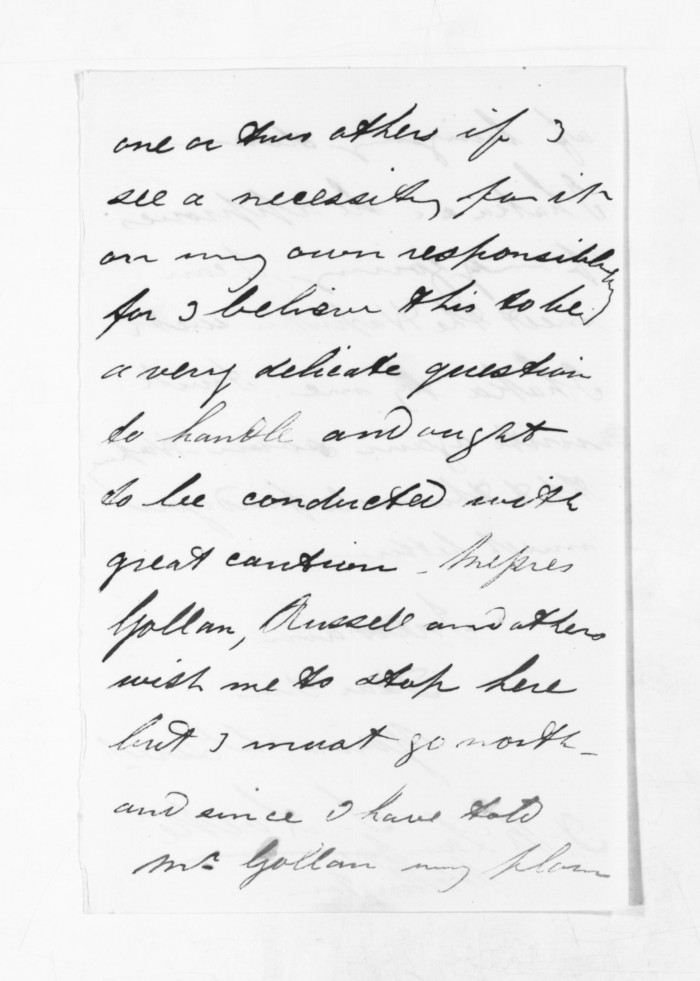 one or two others if I
see a necessity for it
on my own responsibility
for I believe this to be
a very delicate question
to handle and ought
to be conducted with
great caution - Messres
Gollan, Russell and others
wish me to stop here
but I must go north -
and since I have told
Mr Gollan my plan